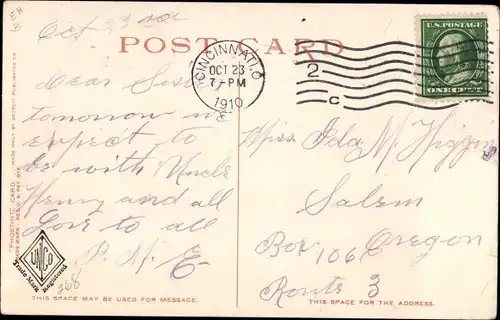 EH
B
Oct 23rd
POST CARD
CINCINNATI, O
OCT 23
7-PM
1910
2
C
U.S. POSTAGE
ONE CENT
Dear
tomorrow we
expect to
be with Uncle
Henry and all
Love to all
P. M. E
Miss Ida M Higgins
Salem
Oregon
Box 106
Route 3
"PHOSTINT" CARD
MADE ONLY BY DETROIT PUBLISHING CO.
UNICO
Trade Mark Registered
268
THIS SPACE MAY BE USED FOR MESSAGE.
THIS SPACE IS FOR THE ADDRESS.